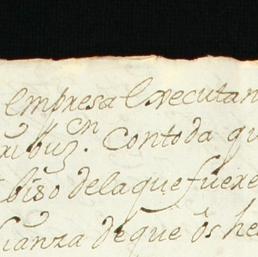 empresa Executan
en. Con toda qu
biso dela que fuere
ianza de que os he